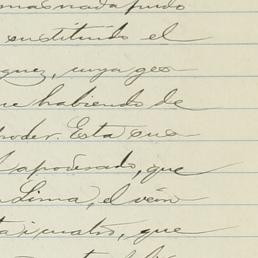 mas nada pudo
sustituido el
guez, cuya ges-
ue habiendo de
poder. Esta sus-
l apoderado, que
Lima, el vein-
ta i cuatro, que